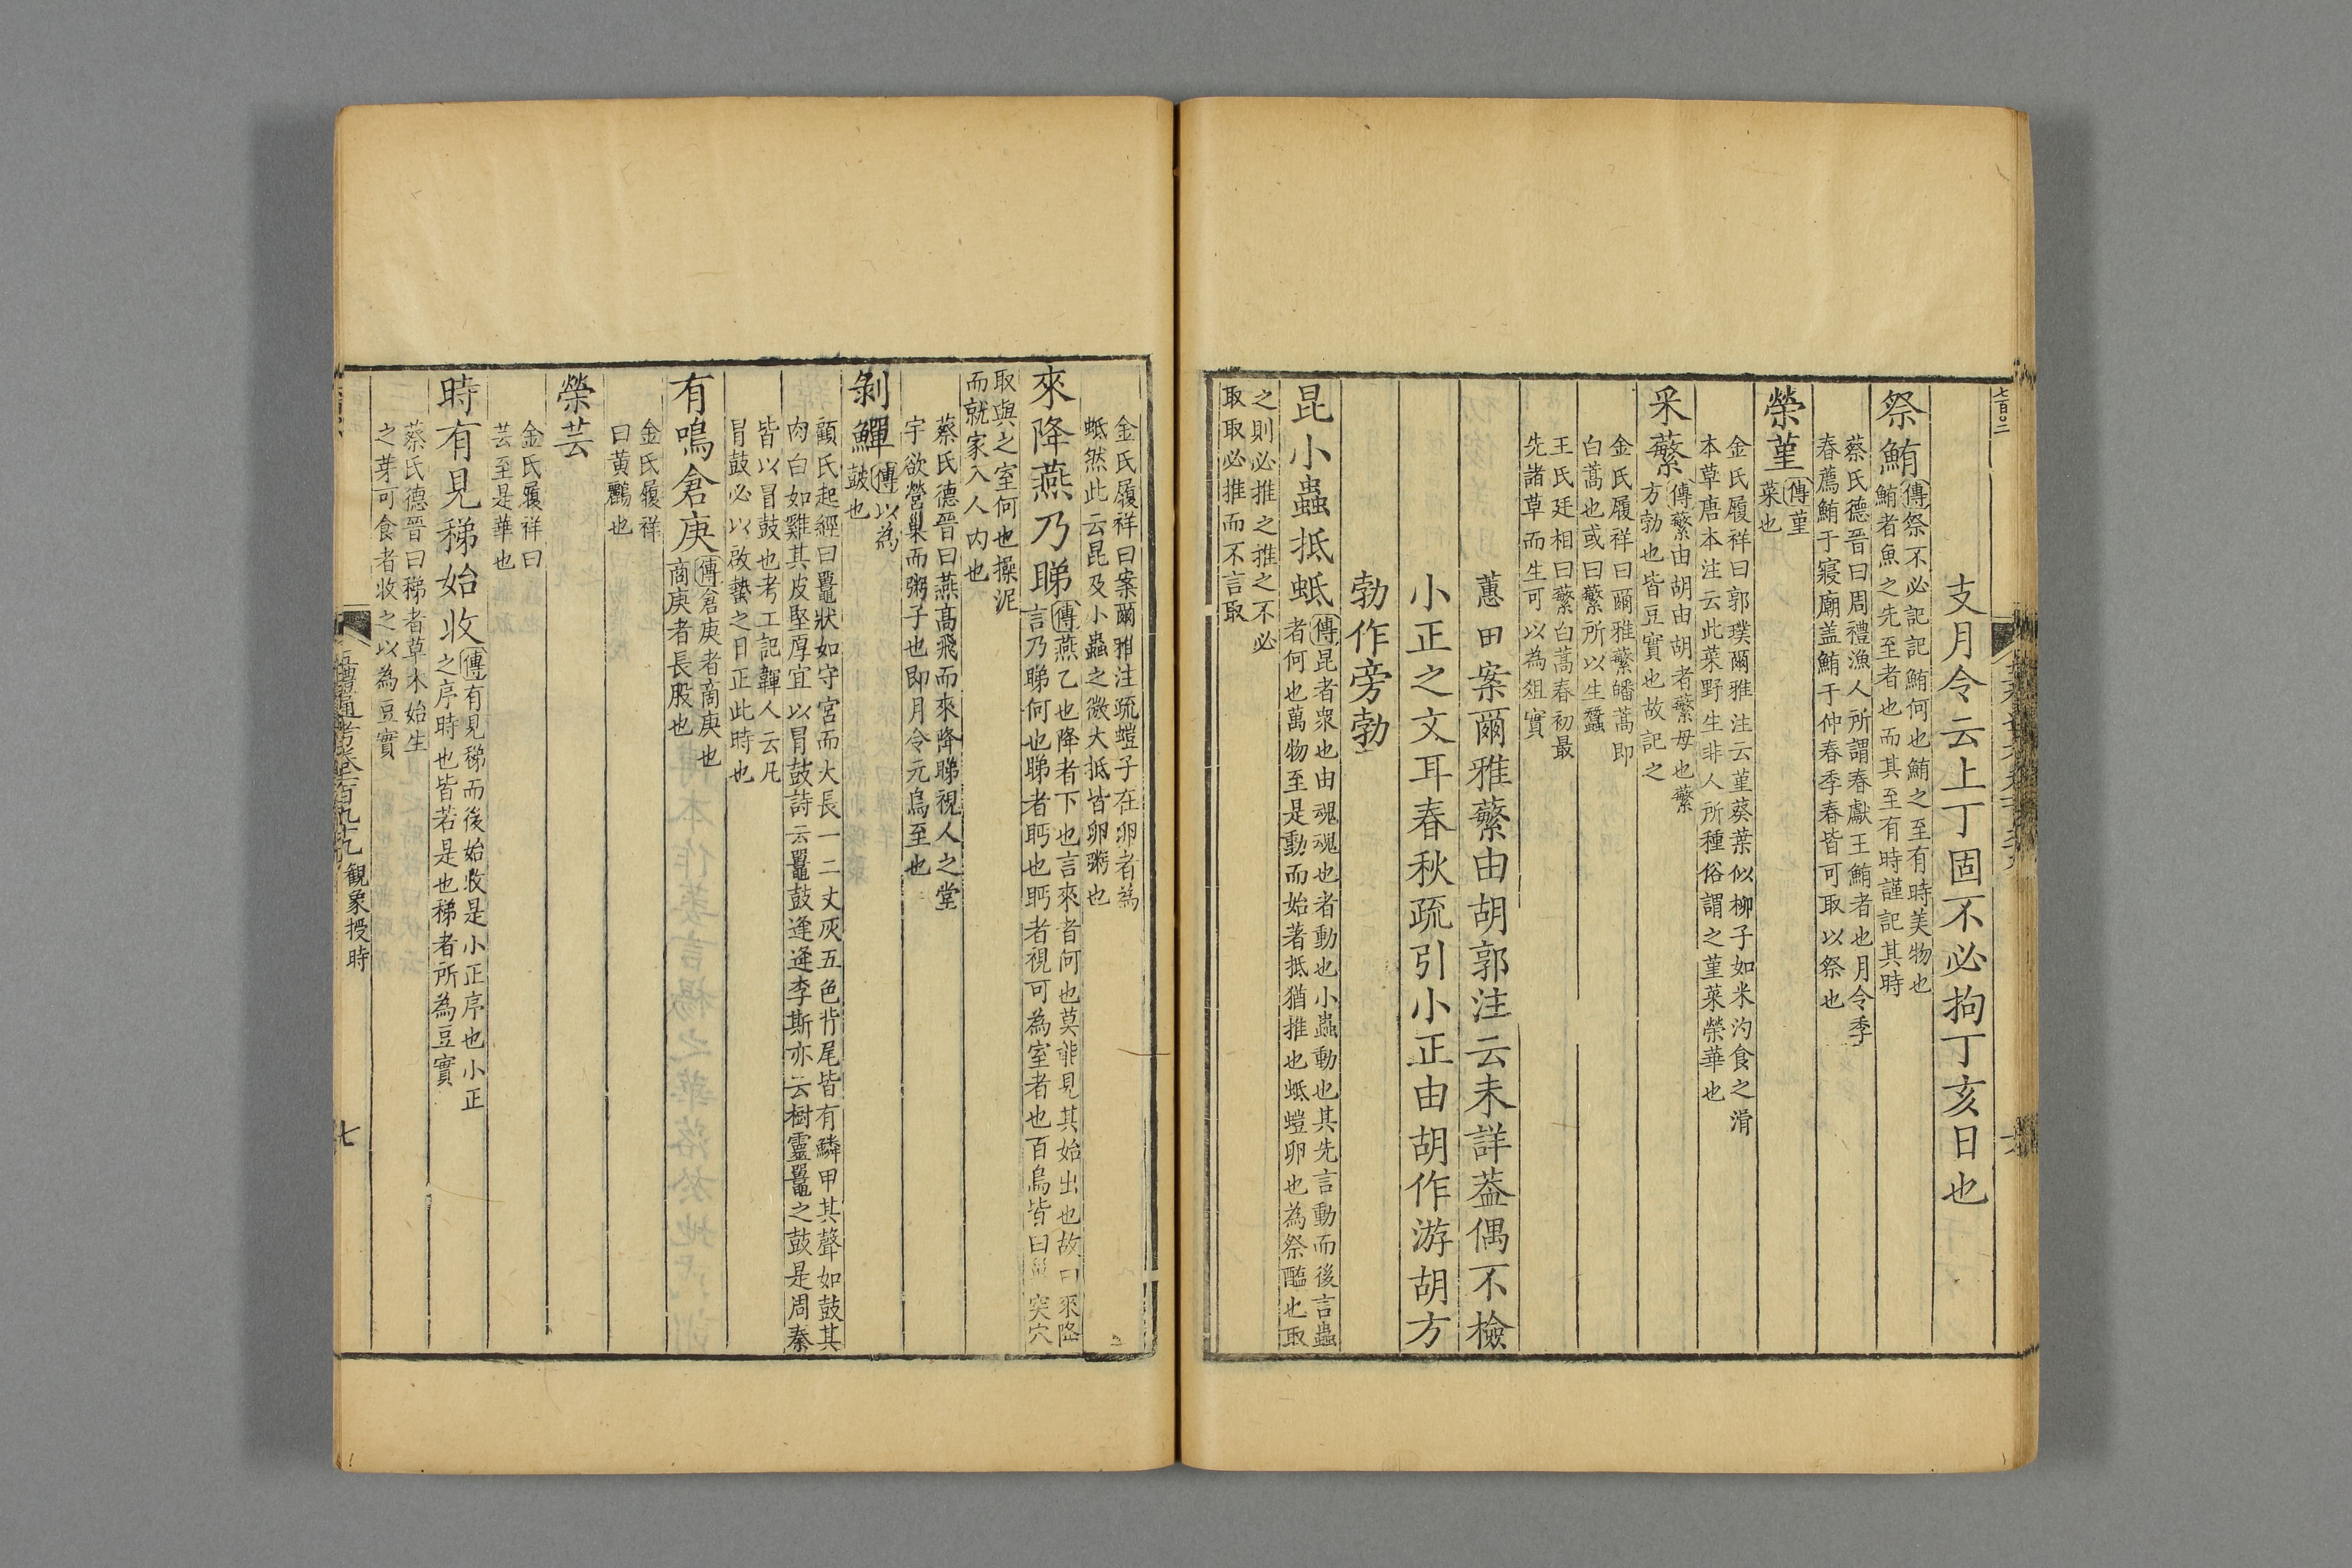 七百二
支月令云上丁固不必拘丁亥日也
祭鮪傳祭不必記記鮪何也鮪之至有時美物也
鮪者魚之先至者也而其至有時謹記其時
蔡氏德晉曰周禮漁人所謂春獻王鮪者也月令季
春薦鮪于寢廟盖鮪于仲春季春皆可取以祭也
榮菫傳菫
菜也
金氏履祥曰郭璞爾雅注云菫葵葉似柳子如米汋食之滑
本草唐本注云此菜野生非人所種俗謂之菫菜榮華也
采蘩傳蘩由胡由胡者蘩母也蘩
方勃也皆豆實也故記之
金氏履祥曰爾雅蘩皤蒿即
白蒿也或曰蘩所以生蠶
王氏廷相曰蘩白蒿春初最
先諸草而生可以為俎實
蕙田案爾雅蘩由胡郭注云未詳葢偶不檢
小正之文耳春秋疏引小正由胡作游胡方
勃作旁勃
昆小蟲抵蚳傳昆者衆也由魂魂也者動也小蟲動也其先言動而後言蟲
者何也萬物至是動而始著抵猶推也蚳螘卵也為祭醢也取
之則必推之推之不必
取取必推而不言取
金氏履祥曰案爾雅注疏螘子在卵者為
蚳然此云昆及小蟲之微大抵皆卵粥也
來降燕乃睇傳燕乙也降者下也言來者何也莫能見其始出也故曰來降
言乃睇何也睇者眄也眄者視可為室者也百鳥皆曰巢突穴
取與之室何也操泥
而就家入人内也
蔡氏德晉曰燕高飛而來降睇視人之堂
宇欲營巢而粥子也即月令元鳥至也
剝鱓傳以為
鼓也
顧氏起經曰鼉狀如守宮而大長一二丈灰五色背尾皆有鱗甲其聲如鼓其
肉白如雞其皮堅厚宜以冒鼓詩云鼉鼓逢逢李斯亦云樹靈鼉之鼓是周秦
皆以冒鼓也考工記韗人云凡
冒鼓必以啟蟄之日正此時也
有鳴倉庚傳倉庚者商庚也
商庚者長股也
金氏履祥
曰黃鸝也
榮芸
金氏履祥曰
芸至是華也
時有見稊始收傳有見稊而後始收是小正序也小正
之序時也皆若是也稊者所為豆實
蔡氏德晉曰稊者草木始生
之芽可食者收之以為豆實
五禮通考卷二百九十九 觀象授時 七